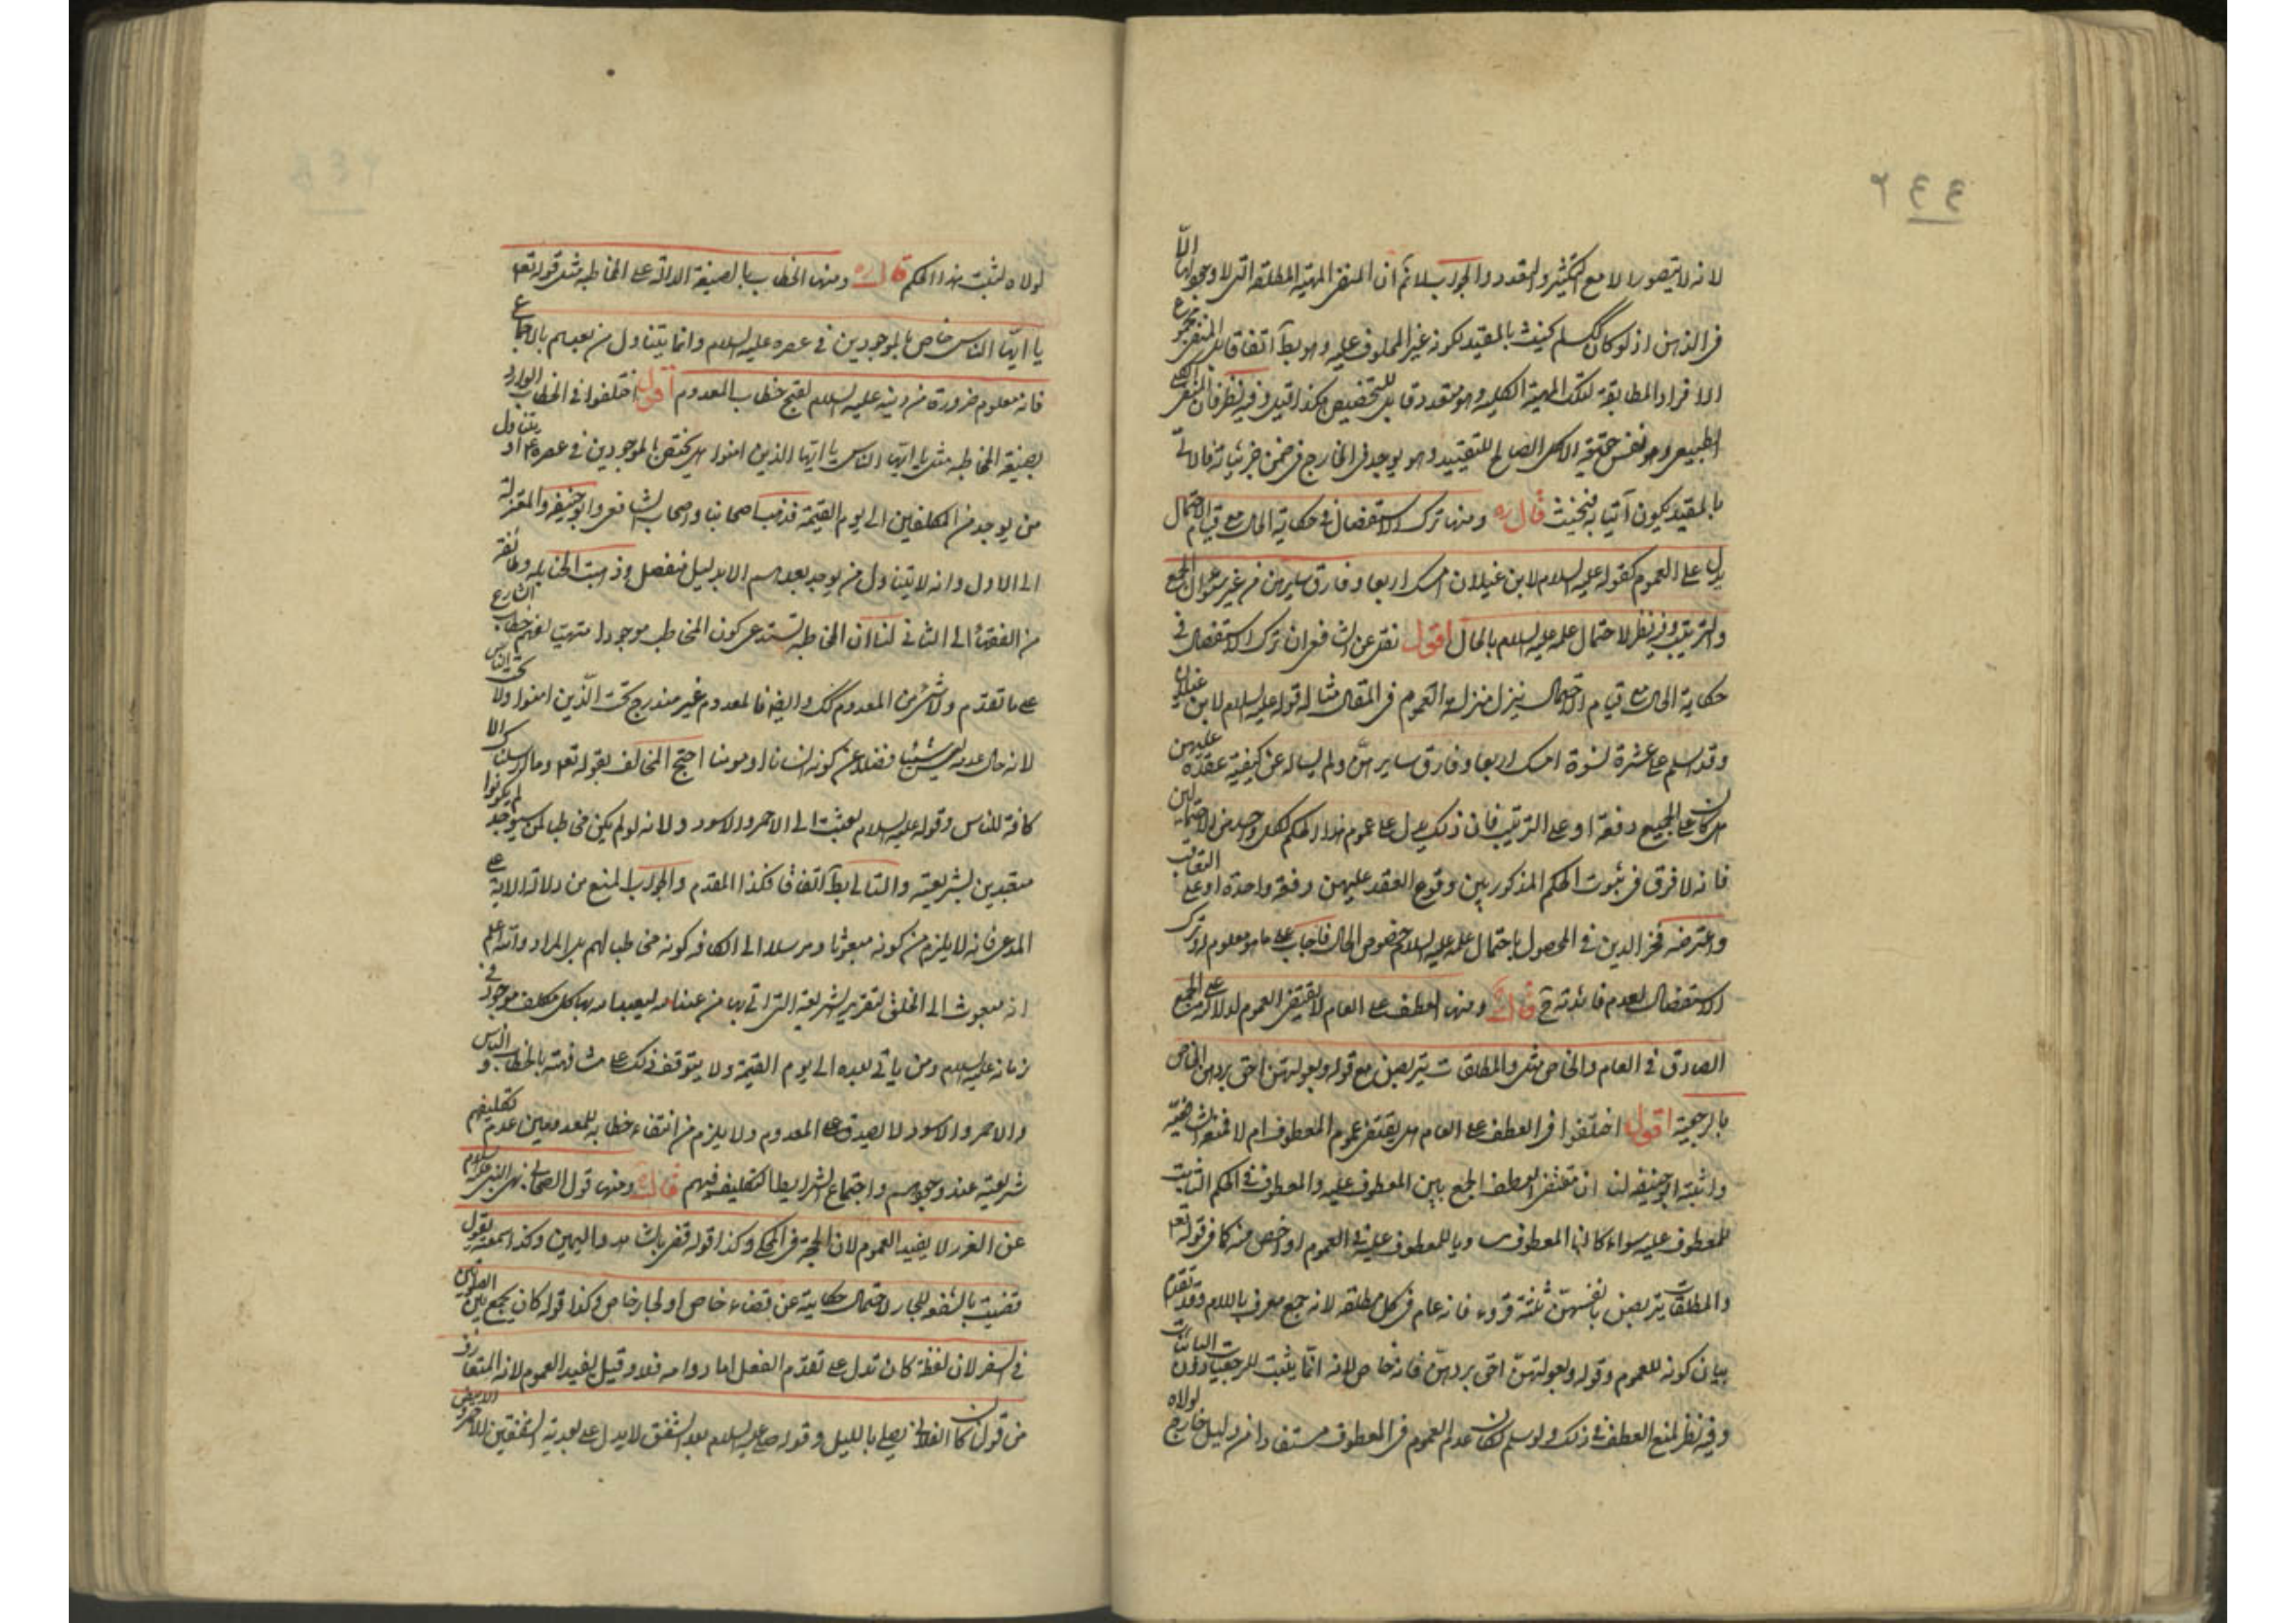 ٢٤٤
لانه لا يتصور الا مع التكثير والتعدد والجواب لا نم ان المنفى المهية المطلقة التى لا وجود لها الا
فى الذهن اذ لو كان كك لم يحنث بالمقيد لكونه غير المحلوف عليه وهو بط اتفاقا بل المنفى
الافراد المطابقة لتلك المهية الكلية وهو متعدد قابل للتخصيص هكذا قيل وفيه نظر فان المنفى
الطبيعى وهو نفس حقيقة الكلى الصالح للتقييد وهو يوجد فى الخارج فى ضمن جزئياته فالاتى
بالمقيد يكون آتيا به فيحنث قال ره ومنها ترك الاستفصال فى حكاية الحال مع قيام الاحتمال
يدل على العموم كقوله عليه السلام لابن غيلان امسك اربعا وفارق سايرهن من غير سؤال الجمع
والترتيب وفيه نظر لاحتمال علمه عليه السلام بالحال اقول نقل عن الشافعى ان ترك الاستفصال فى
حكاية الحال مع قيام الاحتمال ينزل منزلة العموم فى المقال مثاله قوله عليه السلام لابن غيلان
وقد اسلم على عشرة نسوة امسك اربعا وفارق سايرهن ولم يساله عن كيفية عقده عليهن
هل كان على الجميع دفعة او على الترتيب فان ذلك يدل على عموم هذا الحكم لكل واحد من الاحتمالين
فانه لا فرق فى ثبوت الحكم المذكور بين وقوع العقد عليهن دفعة واحدة او على التعاقب
واعترضه فخر الدين فى المحصول باحتمال علمه عليه السلام خصوص الحال فاجاب على ما هو معلوم له وترك
الاستفصال لعدم فائدته ح قال ره ومنها العطف على العام لا يقتضى العموم لدلالته على الجمع
الصادق فى العام والخاص مثل والمطلقات يتربصن مع قوله وبعولتهن احق بردهن الخاص
بالرجعية اقول اختلفوا فى العطف على العام هل يقتضى عموم المعطوف ام لا فمنعه الشافعية
واثبته ابو حنيفه لنا ان مقتضى العطف الجمع بين المعطوف عليه والمعطوف فى الحكم الثابت
للمعطوف عليه سواء كان المعطوف مساويا للمعطوف عليه فى العموم او اخص منه كما فى قوله تعه
والمطلقات يتربصن بانفسهن ثلثة قروء فانه عام فى كل مطلقه لانه جمع معرف باللام وقد تقدم
بيان كونه للعموم وقوله وبعولتهن احق بردهن فانه خاص لانه انما يثبت للرجعيات دون الباينات
وفيه نظر لمنع العطف فى ذلك ولو سلم لكان عدم العموم فى المعطوف مستفادا من دليل خارج لولاه
لولاه لثبت هذا الحكم قال ره ومنها الخطاب بالصيغة الدالة على المخاطبة مثل قوله تعه
يا ايها الناس خاص بالموجودين فى عصره عليه السلام وانما يتناول من بعدهم بالاجماع
فانه معلوم ضرورة من دينه عليه السلام لقبح خطاب المعدوم اقول اختلفوا فى الخطاب الوارد
بصيغة المخاطبة مثل يا ايها الناس يا ايها الذين امنوا هل يختص بالموجودين فى عصره ع او يتناول
من يوجد من المكلفين الى يوم القيمة فذهب اصحابنا واصحاب الشافعى وابو حنيفه والمعتزلة
الى الاول وانه لا يتناول من يوجد بعدهم الا بدليل منفصل وذهبت الحنابله وطائفة
من الفقهاء الى الثانى لنا ان المخاطبة تستدعى كون المخاطب موجودا متهيئا لفهم خطاب الشارع
على ما تقدم ولا شئ من المعدوم كك وايضا فالمعدوم غير مندرج تحت الذين امنوا ولا تحت الناس
لانه حال عدمه ليس شيئا فضلا عن كونه انسانا او مومنا احتج المخالف بقوله تعه وما ارسلناك الا
كافة للناس وقوله عليه السلام بعثت الى الاحمر والاسود ولانه لو لم يكن مخاطبا لمن سيوجد لم يكونوا
متعبدين بشريعته والتالى بط اتفاقا فكذا المقدم والجواب المنع من دلالة الاية على
المدعى فانه لا يلزم من كونه مبعوثا ومرسلا الى الكافه كونه مخاطبا لهم بل المراد والله اعلم
انه مبعوث الى الخلق لتقرير الشريعة التى اتى بها من عند الله ليعبد الله بها كل مكلف موجود فى
زمانه عليه السلام ومن ياتى بعده الى يوم القيمة ولا يتوقف ذلك على مشافهته بالخطاب والناس
والاحمر والاسود لا يصدق على المعدوم ولا يلزم من انتفاء خطابه للمعدومين عدم تكليفهم
شريعته عند وجودهم واجتماع شرايط التكليف فيهم قال ره ومنها قول الصحابى نهى النبى عليه السلام
عن الغرر لا يفيد العموم لان الحجة فى المحكى وكذا قوله قضى بالشاهد واليمين وكذا سمعته يقول
قضيت بالشفعة للجار لاحتمال حكايته عن قضاء خاص او لجار خاص وكذا قوله كان يجمع بين الصلوتين
فى السفر لان لفظة كان تدل على تقدم الفعل اما دوامه فلا وقيل يفيد العموم لانه المتعارف
من قولنا كان الفلانى يصلى بالليل وقوله صلى عليه السلام بعد الشفق لا يدل على بعدية الشفقين الاحمر والابيض